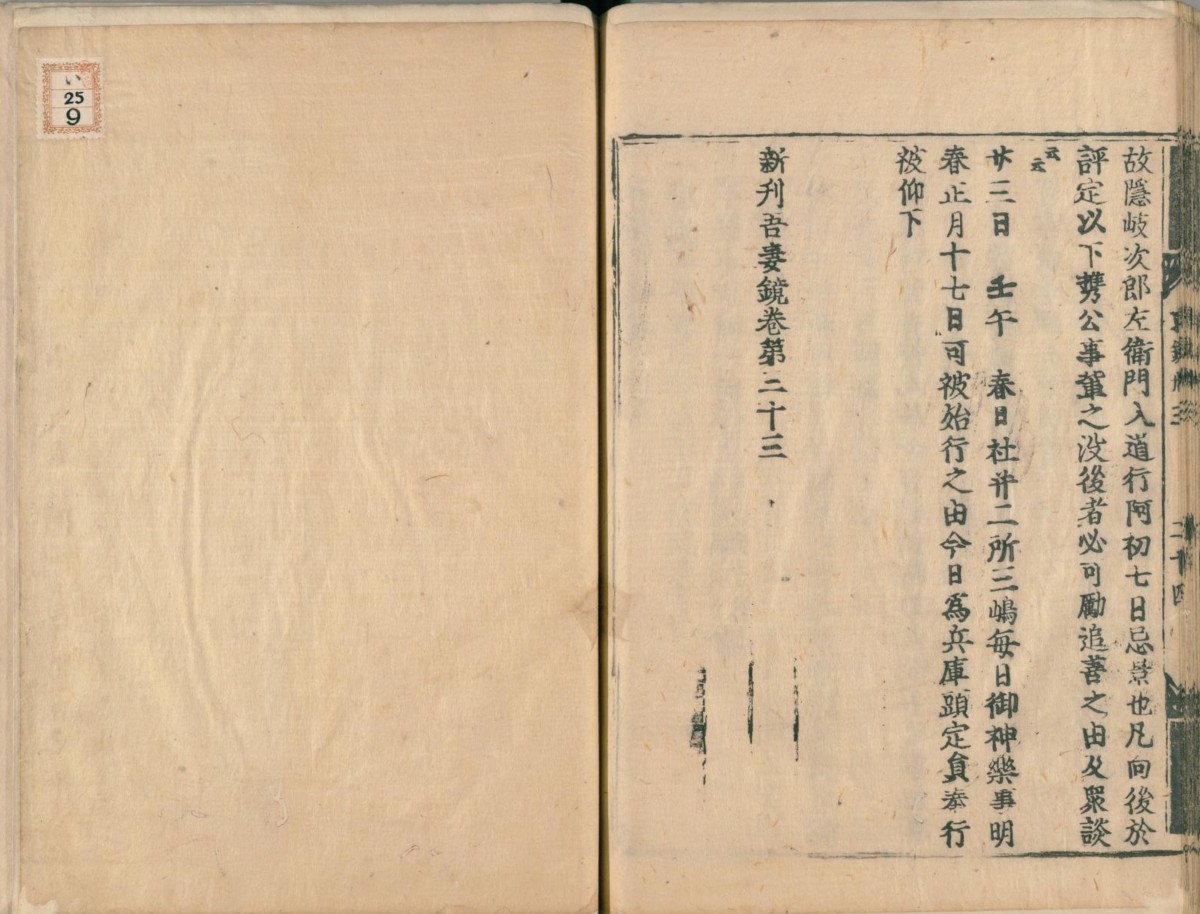 故隱岐次郎左衛門入道行阿初七日忌景也凡向後於
評定以下携公事輩之没後者必可勵追善之由及衆談
云云
廿三日　壬午　春日社并二所三嶋毎日御神樂事明
春正月十七日可被始行之由今日爲兵庫頭定員奉行
被仰下
新刊吾妻鏡卷第三十三
二十四
い
25
9